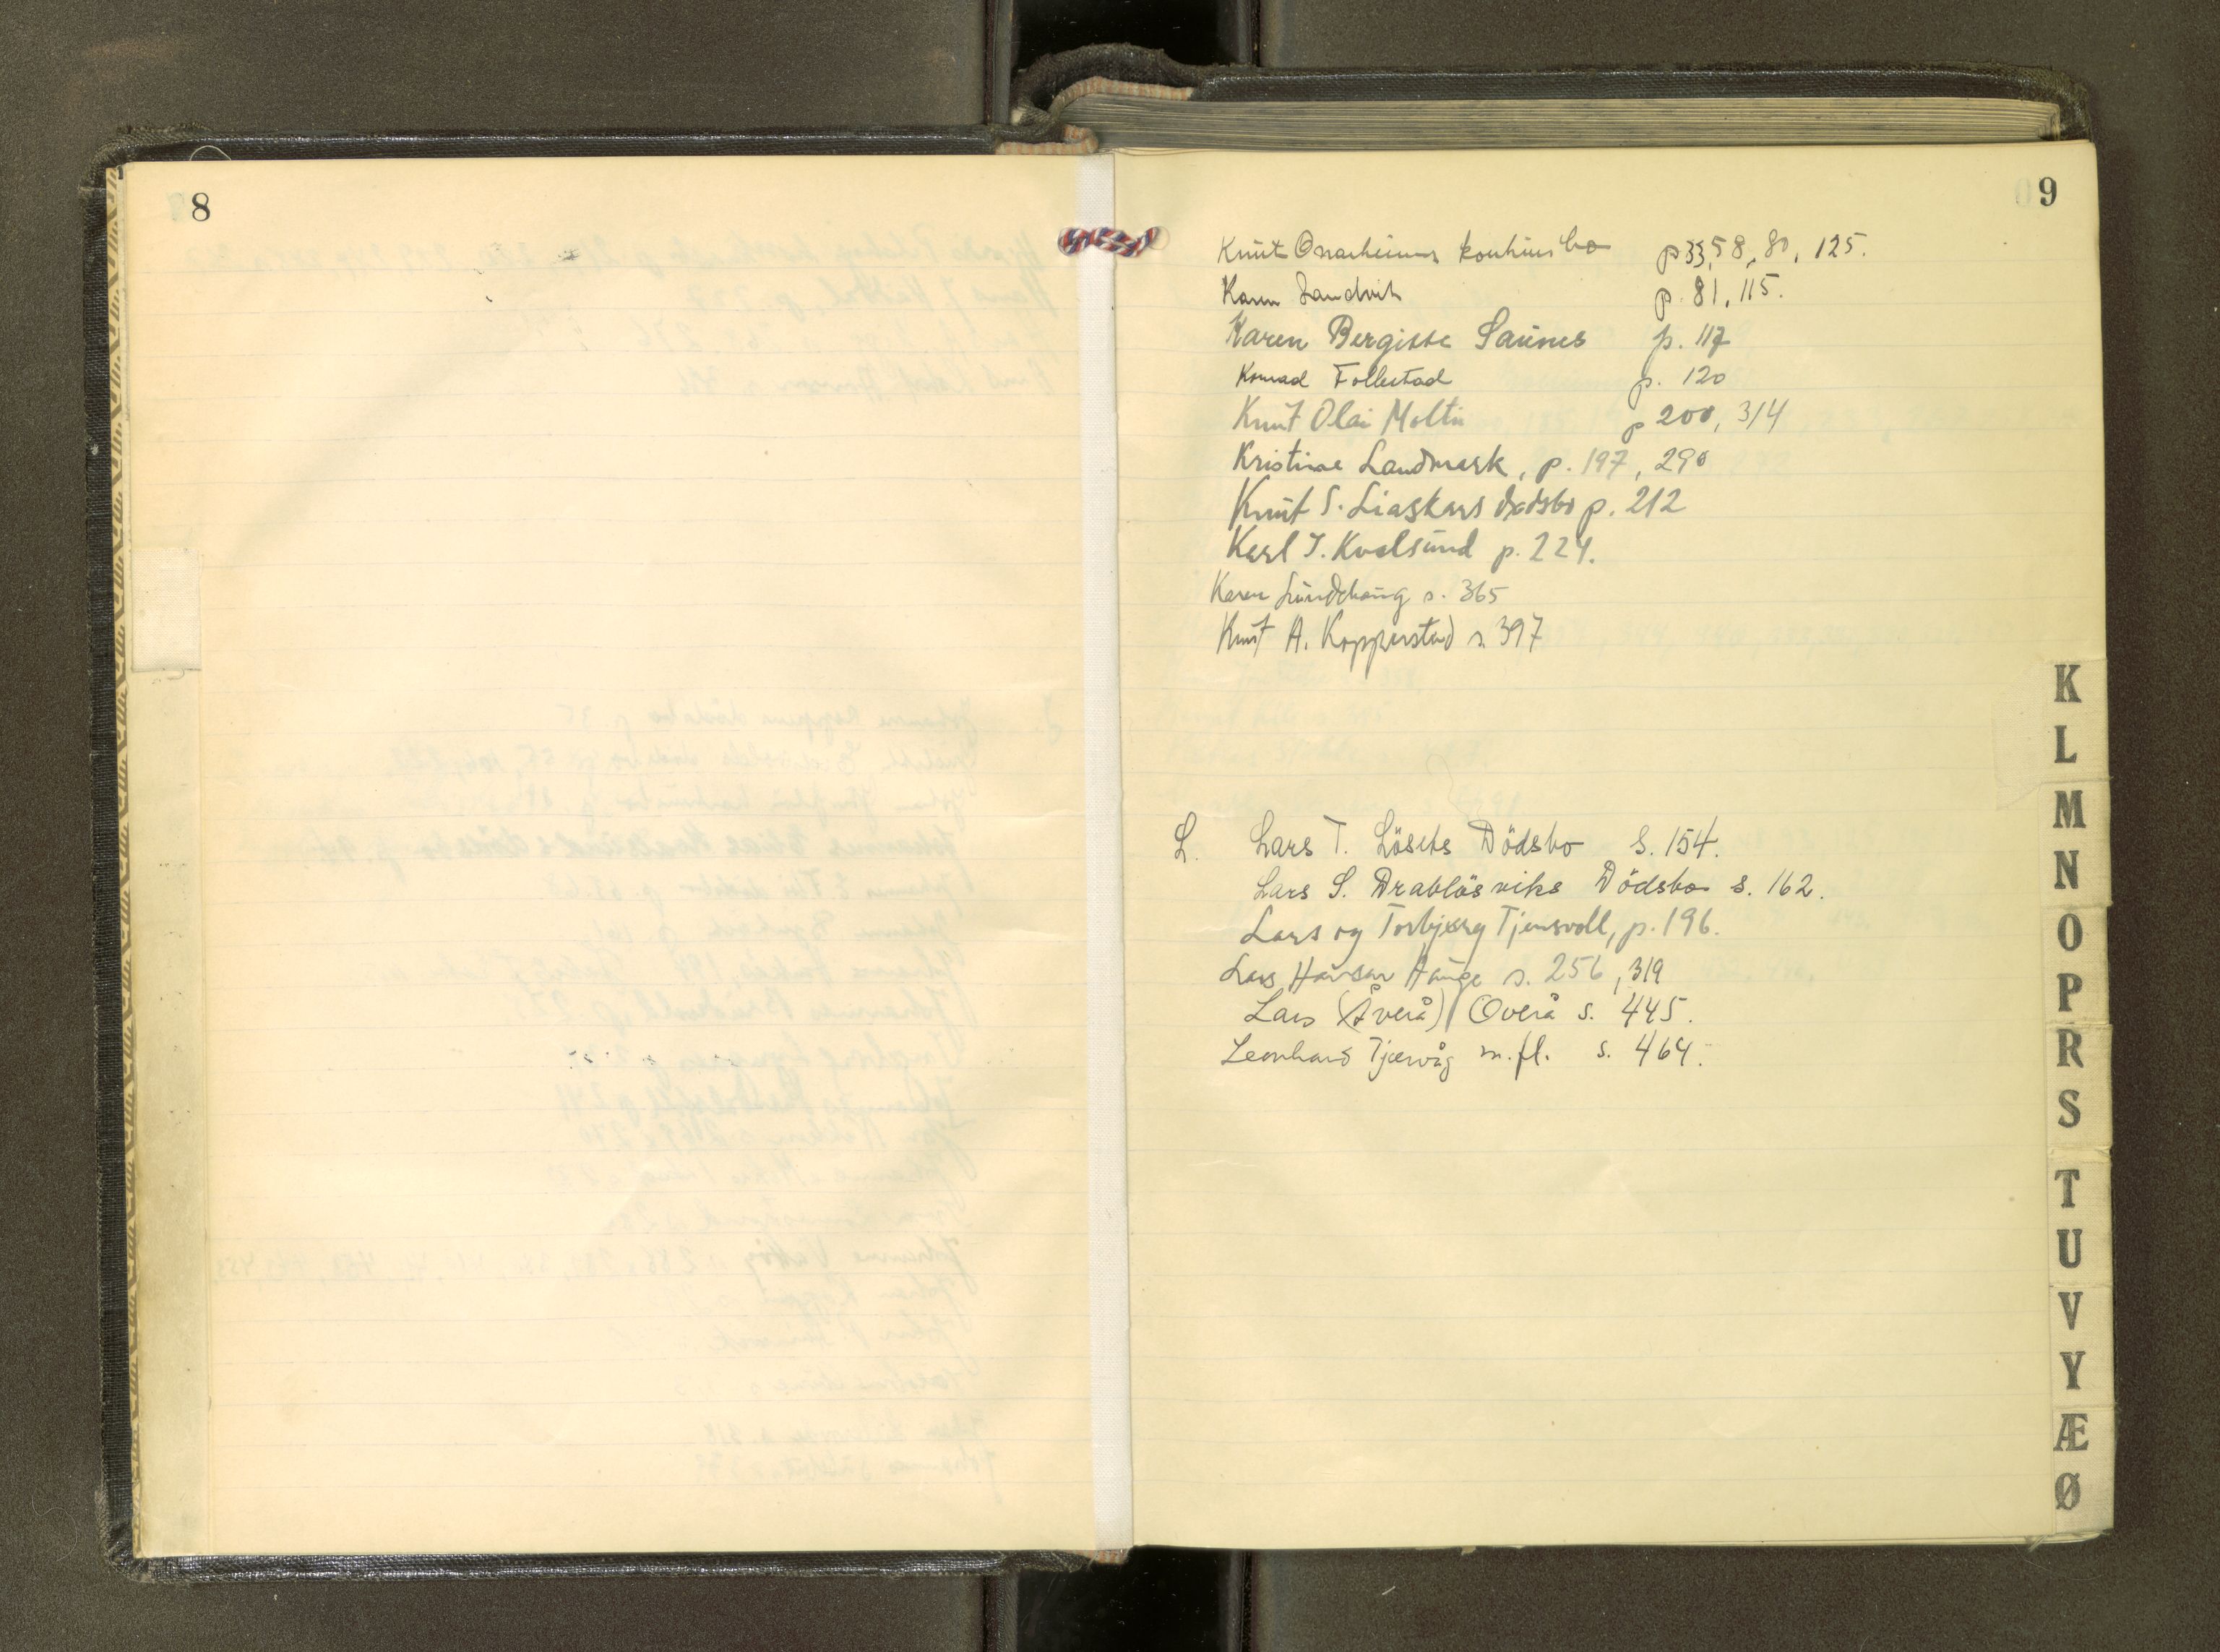 8
9
Knut Onarheims konkursbo p 33, 58, 80, 125.
Karen Sandvik p. 81, 115.
Karen Bergitte Saunes p. 117
Konrad Follestad p. 120
Knut Olai Moltu p 200, 314
Kristine Landmark, p. 197, 290
Knut S. Liaskars dødsbo p. 212
Karl J. Kvalsund p. 224.
Karen s. 365
Knut A. Kopperstad s. 397
L. Lars T. Lösets Dödsbo S. 154.
Lars S. Drablösviks Dödsbo s. 162.
Lars og Torbjørg Tjensvoll, p. 196.
Lars Hansen Hauge s. 256, 319
Lars (Åverå) Overå s. 445.
Leonhard Tjervåg m.fl. s. 464.
K
L
M
N
O
P
R
S
T
U
V
Y
Æ
Ø